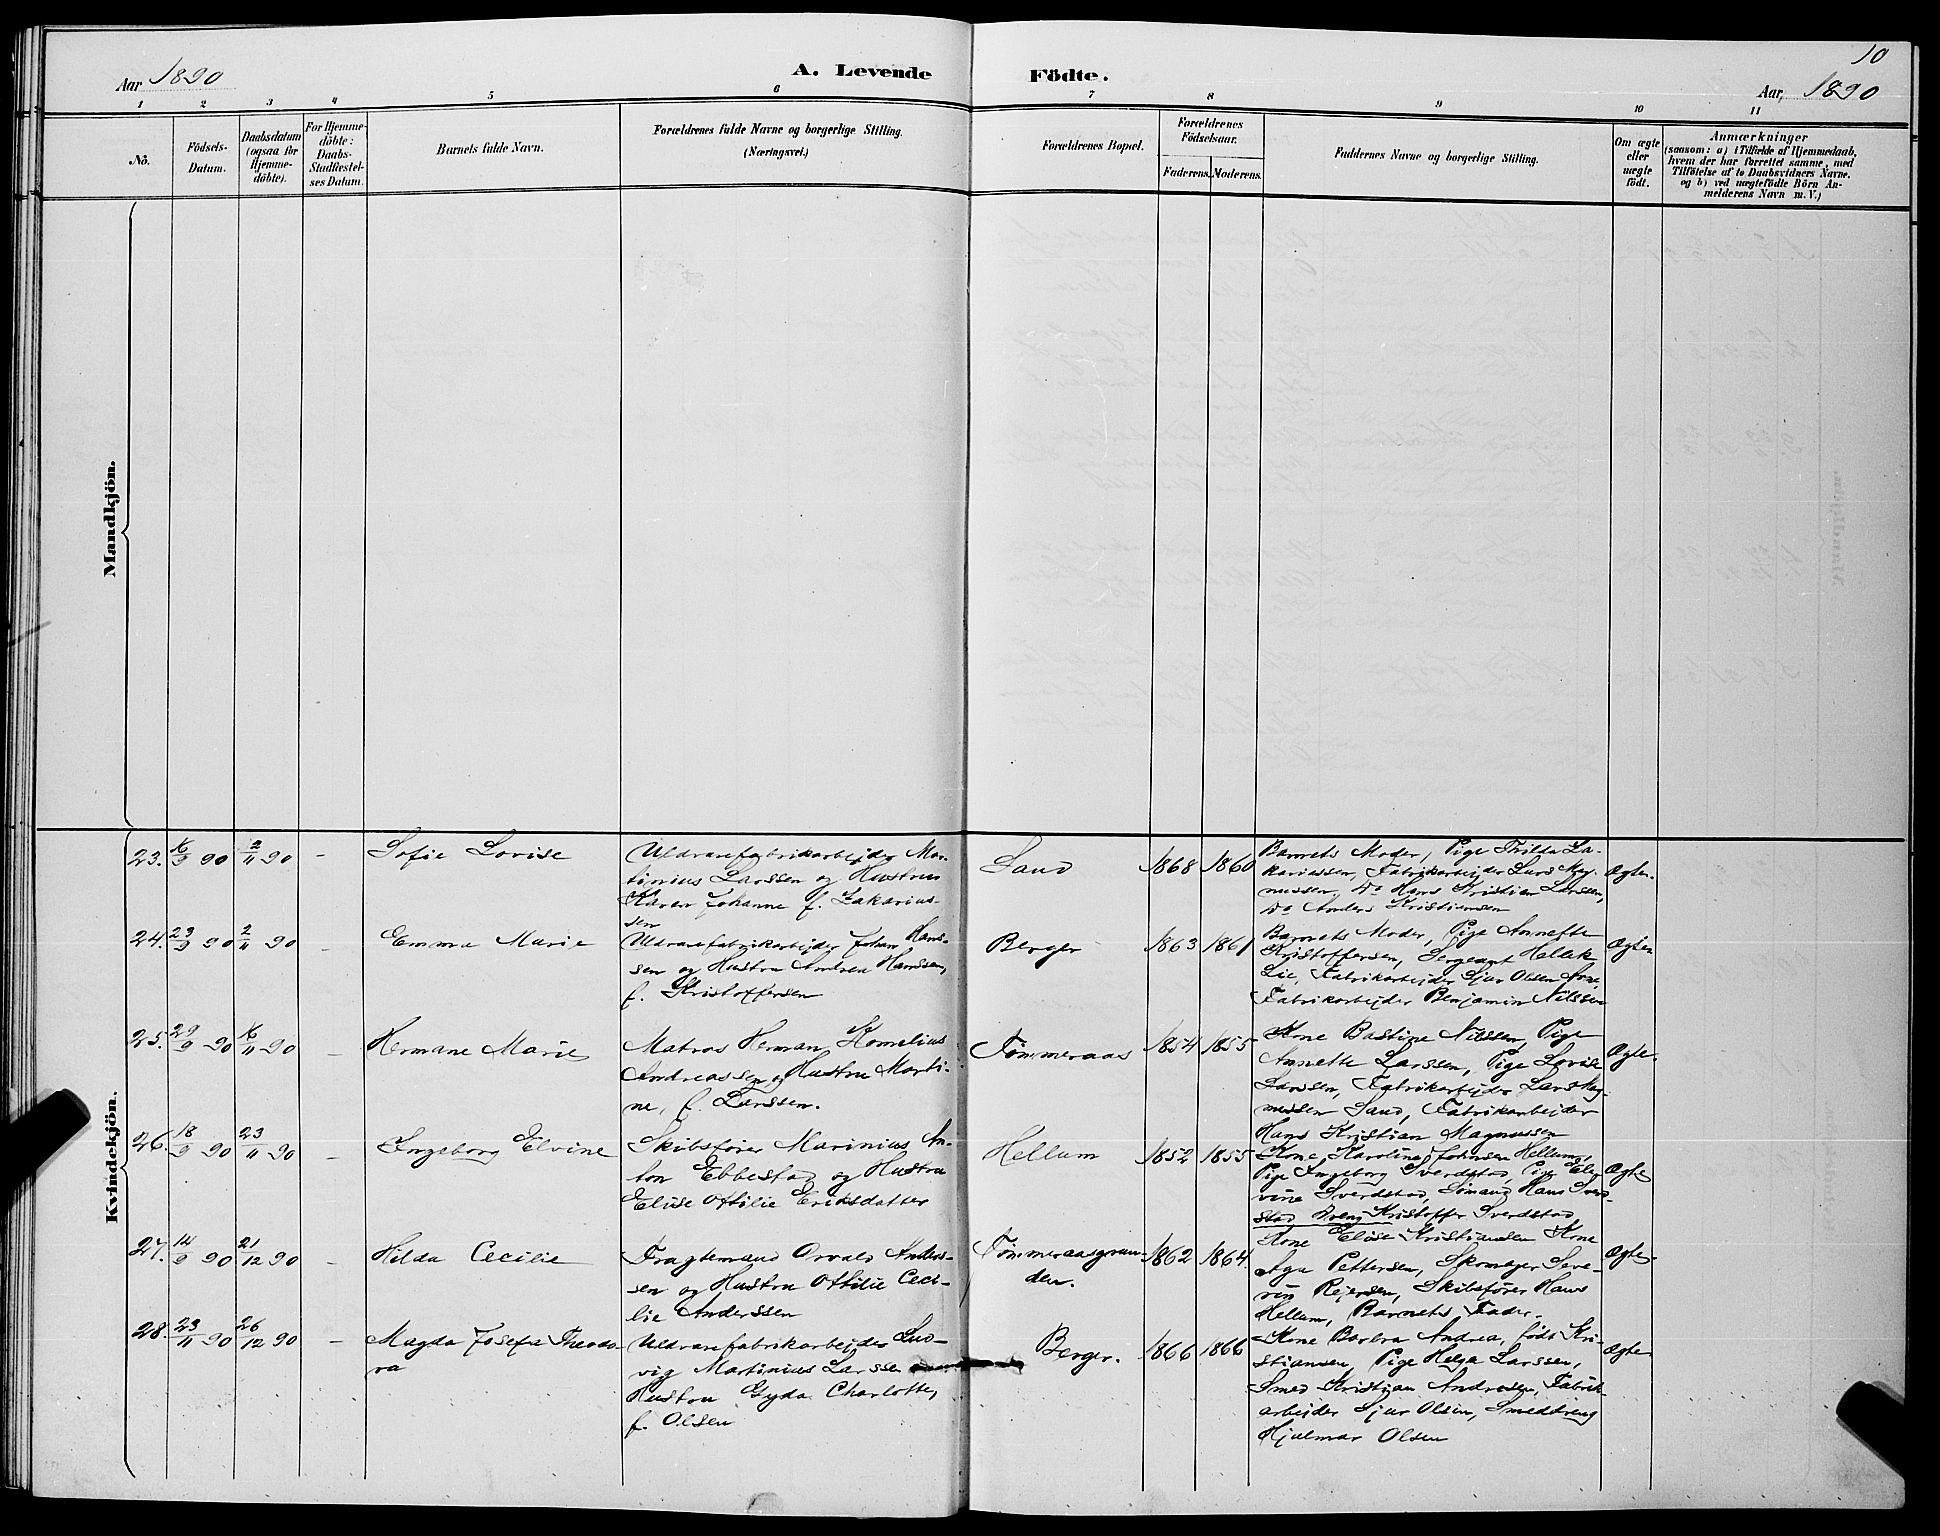 10
Aar 1890
A. Levende
Födte.
Aar, 1890
1 2 3 4 5 6 7 8 9 10 11
Nö.
Födsels-
Datum.
Daabsdatum
(ogsaa for
Hjemme-
döbte).
For Hjemme-
döbte:
Daabs-
Stadfæstel-
ses Datum.
Barnets fulde Navn.
Forældrenes fulde Navne og borgerlige Stilling.
(Næringsvei.)
Forældrenes Bopæl.
Forældrenes
Födselsaar.
Faderens. Moderens.
Faddernes Navne og borgerlige Stilling.
Om ægte
eller
uægte
födt.
Anmærkninger
(saasom: a) i Tilfælde af Hjemmedaab,
hvem der har forrettet samme, med
Tilföielse af to Daabsvidners Navne,
og b) ved uægtefödte Börn An-
melderens Navn m. V.)
Mandkjön.
Kvindekjön.
23. 16/9 90 2/11 90 -
Sofie Lovise
Uldvarefabrikarbejder Mar-
tinius Larssen og Hustru
Karen Johanne f. Zakarias-
sen
Sand
1868 1860
Barnets Moder, Pige Thilda Za-
kariassen, Fabrikarbejder Lars Mag-
nussen, Do Hans Kristian Larssen,
Do Anders Kristiansen
Ægte.
24. 23/9 90 2/11 90 -
Emma Marie
Uldvarefabrikarbejder Johan Hans-
sen og Hustru Andrea Hanssen,
f. Kristoffersen
Berger
1863 1861
Barnets Moder, Pige Annette
Kristoffersen, Sergeant Hellek
Lie, Fabrikarbejder Sjur Olsen
Fabrikarbejder Benjamin Nilssen
Ægte
25. 29/9 90 16/11 90 -
Hermane Marie
Matros Herman Kornelius
Andreassen og Hustru Marti-
ne, f. Larssen.
Tømmeraas
1854 1855
Kone Bastine Nilssen, Pige
Annette Larssen, Pige Lovise
Larssen, Fabrikarbejder Lars Mag-
nussen Sand, Fabrikarbejder
Hans Kristian Magnussen
Ægte.
26. 18/9 90 23/11 90 -
Ingeborg Elvine
Skibsfører Marinius An-
ton Ebbestad og Hustru
Elise Othilie Eriksdatter
Hellum
1852 1855
Kone Karoline Johnsen Hellum,
Pige Ingeborg Sverdstad, Pige El-
vine Sverdstad, Sømand Hans Sverd-
stad, Dreng Kristoffer Sverdstad
Ægte
27. 14/9 90 21/12 90 -
Hilda Cecilie
Fragtemand Osvald Anders-
sen og Hustru Othilie Ceci-
lie Anderssen
Tømmeraasgrun-
den.
1862 1864.
Kone Elise Kristiansen Kone
Aga Pettersen, Skomager Seve-
rin Rejersen, Skibsfører Hans
Hellum, Barnets Fader.
Ægte.
28. 23/11 90 26/12 90 -
Magda Josefa Theodo-
ra
Uldvarefabrikarbejder Lud-
vig Martinius Larssen
Hustru Gyda Charlotte,
f. Olsen
Berger.
1866 1866
Kone Barbra Andrea, født Kri-
stiansen, Pige Helga Larssen,
Smed Kristian Andresen, Fabrik-
arbejder Sjur Olsen, Smeddreng
Hjalmar Olsen
Ægte